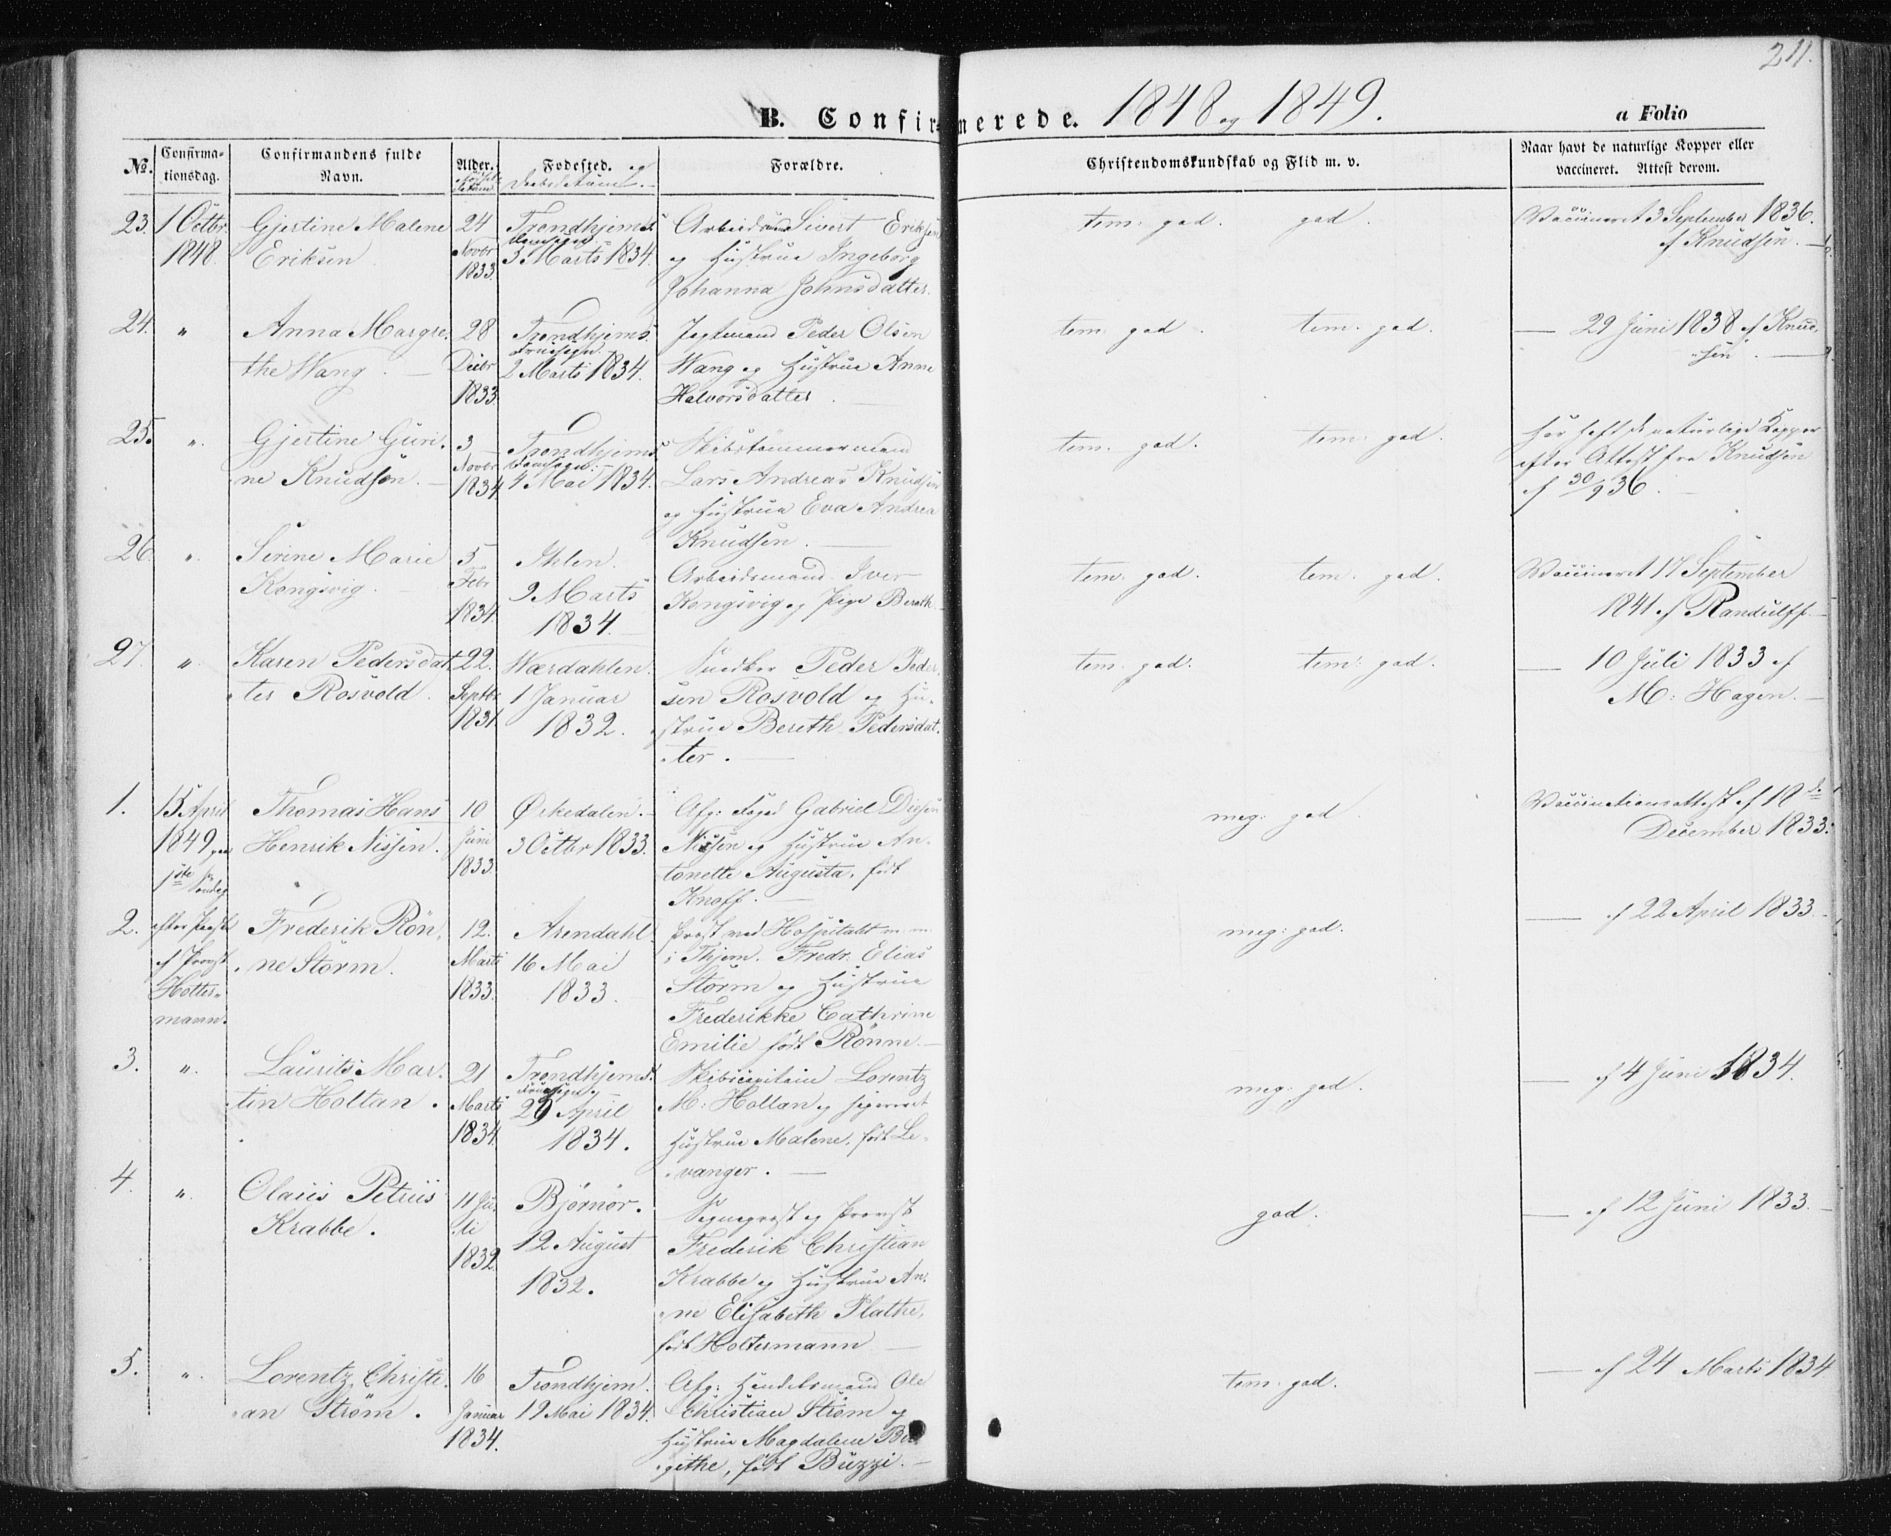 211.
B. Confirmerede. 1848 og 1849.
a Folio
No.
Confirma-
tionsdag.
Confirmandens fulde
Navn.
Alder.
Fødested. og
Daabsdatum.
Forældre.
Christendomskundskab og Flid m. v.
Naar havt de naturlige Kopper eller
vaccineret. Attest derom.
23. 1 Octbr. Gjertine Malene 24 Trondhjems Arbeidsmd Sivert Eriksen tem. god. god. Vaccineret 3 September 1836.
1848. Eriksen Novbr 3 Marts 1834 og Hustrue Ingeborg af Knudsen.
1833. Johanna Johnsdatter.
24. " Anna Margre- 28 Trondhjems Jægtmand Peder Olsen tem. god. tem. god. — 29 Juni 1838 af Knud-
Fruesogn.
the Wang. Decbr 2 Marts 1834. Wang og Hustrue Anne sen.
1833 Halvorsdatter.
25. " Gjertine Guri- 3 Trondhjems Skibstømmermand tem. god. tem. god. har haft de naturlige Kopper
Domsogn.
ne Knudsen. Novbr 4 Mai 1834. Lars Andreas Knudsen efter Attest fra Knudsen
1834 og Hustrue Eva Andrea af 30/9 36.
Knudsen.
26. " Serine Marie 5 Ihlen. Arbeidsmand Iver tem. god. tem. god. Vaccineret 17 September
Kongsvig. Febr 9 Marts Kongsvig og Pige Bereth. 1841 af Randulff.
1834. 1834.
27. " Karen Pedersdat- 22. Værdahlen. Snedker Peder Peder- tem. god. tem. god. — 10 Juli 1833 af
ter Rosvold. Septbr 1 Januar sen Rosvold og Hu- M. Hagen.
1831 1832. strue Bereth Pedersdat-
ter.
1. 15 April Thomas Hans 10 Ørkedalen. Afg. Foged Gabriel meg. god. Vaccinationsattest af 18de
1849 paa Henrik Nissen. Juni 3 Octbr 1833. Nissen og Hustrue An- December 1833.
1ste Søndag 1833 tonette Augusta, født
Knoff.
2. efter Paaske Frederik Røn- 12. Arendahl. Præst ved Hospitalet m. m. meg. god. — af 22 April 1833.
af Provst ne Storm. Marts 16 Mai i Thjem. Fredr. Elias
Holter- 1833. 1833. Storm og Hustrue
mann. Frederikke Cathrine
Emilie født Rønne.
3. " Laurits Mar- 21 Trondhjems Skibscapitain Lorentz meg. god. — af 4 Juni 1834.
Fruesogn
tin Holtan. Marts 29 April M. Holtan og
1834. 1834. Hustrue Malene, født Le-
vanger.
4. " Olaus Petrus 11 Ju- Bjørnør. Sognepræst og Provst god. — af 12 Juni 1833.
Krabbe. li 12 August Frederik Christian
1832. 1832. Krabbe og Hustrue An-
ne Elisabeth Plathe,
født Holtermann
5. " Lorentz Christi- 16 Trondhjem. Afg. Handelsmand Ole tem. god. — af 24 Marts 1834
an Strøm. Januar 19 Mai 1834. Christian Strøm og
1834. Hustrue Magdalene Bir-
githe, født Buzzi.